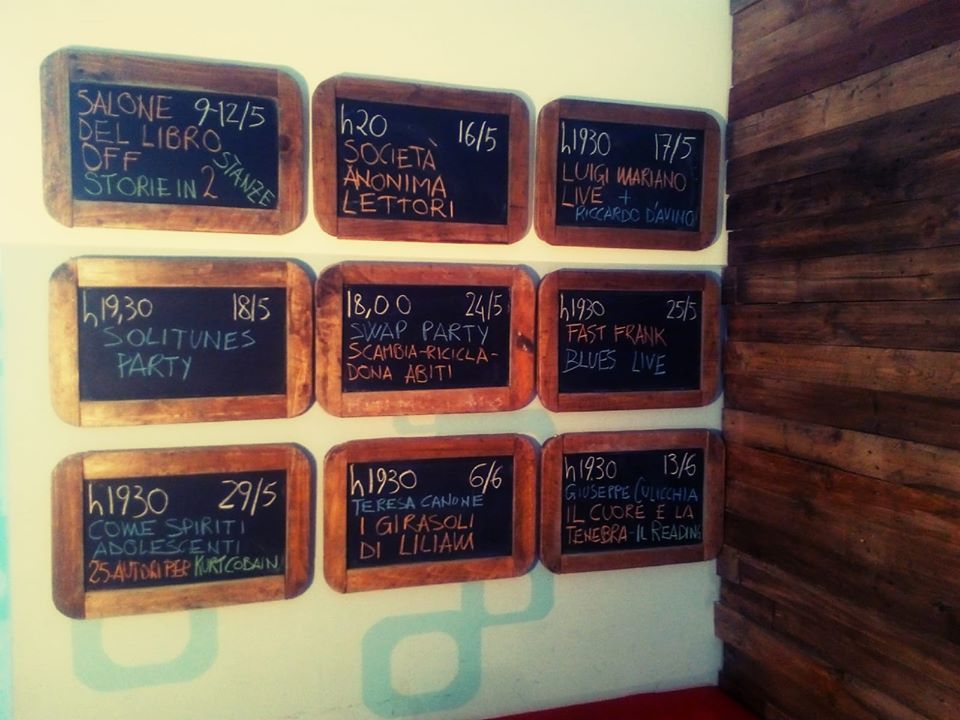 SALONE 9-12/5
DEL LIBRO
OFF
STORIE IN 2 STANZE
h20 16/5
SOCIETÀ
ANONIMA
LETTORI
h1930 17/5
LUIGI MARIANO
LIVE +
RICCARDO D'AVINO
h19,30 18/5
SOLITUNES
PARTY
18,00 24/5
SWAP PARTY
SCAMBIA-RICICLA-
DONA ABITI
h1930 25/5
FAST FRANK
BLUES LIVE
h1930 29/5
COME SPIRITI
ADOLESCENTI
25 AUTORI PER KURT COBAIN
h1930 6/6
TERESA CANONE
I GIRASOLI
DI LILIAM
h19.30 13/6
GIUSEPPE CULICCHIA
IL CUORE E LA
TENEBRA-IL READING